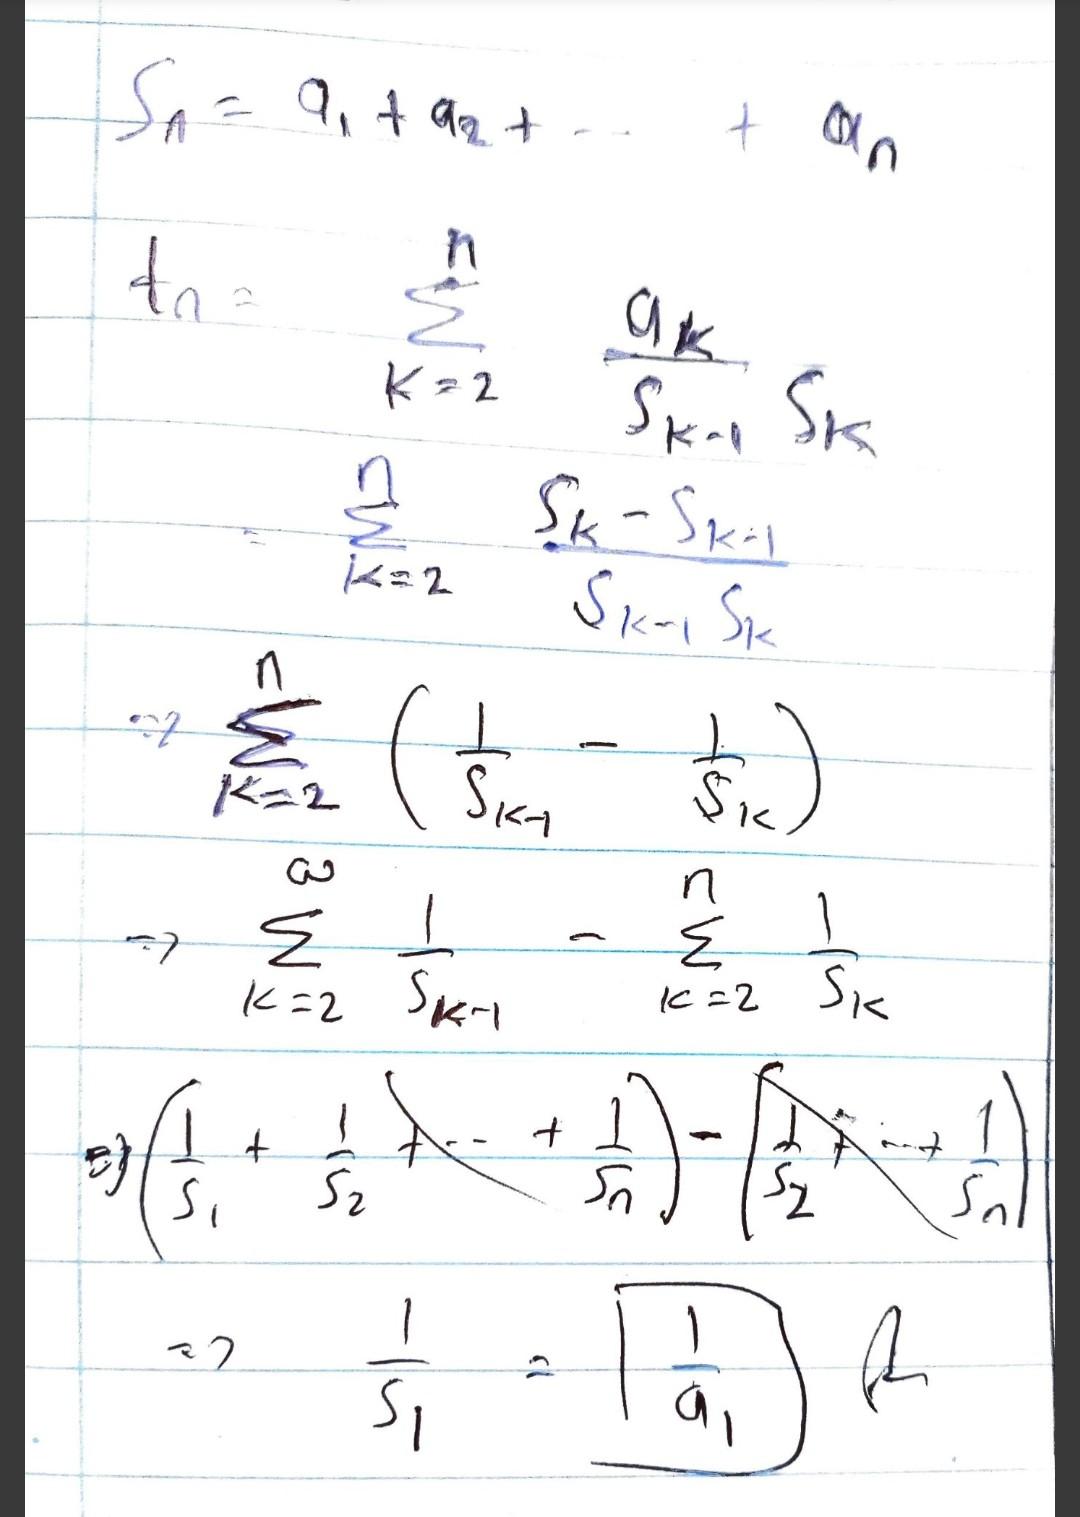 Sn = a1 + a2 + ... + an
tn = n∑k=2 ak / (Sk-1 Sk)
= n∑k=2 (Sk - Sk-1) / (Sk-1 Sk)
=> n∑k=2 (1/Sk-1 - 1/Sk)
=> ∞∑k=2 1/Sk-1 - n∑k=2 1/Sk
=> (1/S1 + 1/S2 + ... + 1/Sn) - (1/S2 + ... + 1/Sn)
=> 1/S1 = 1/a1